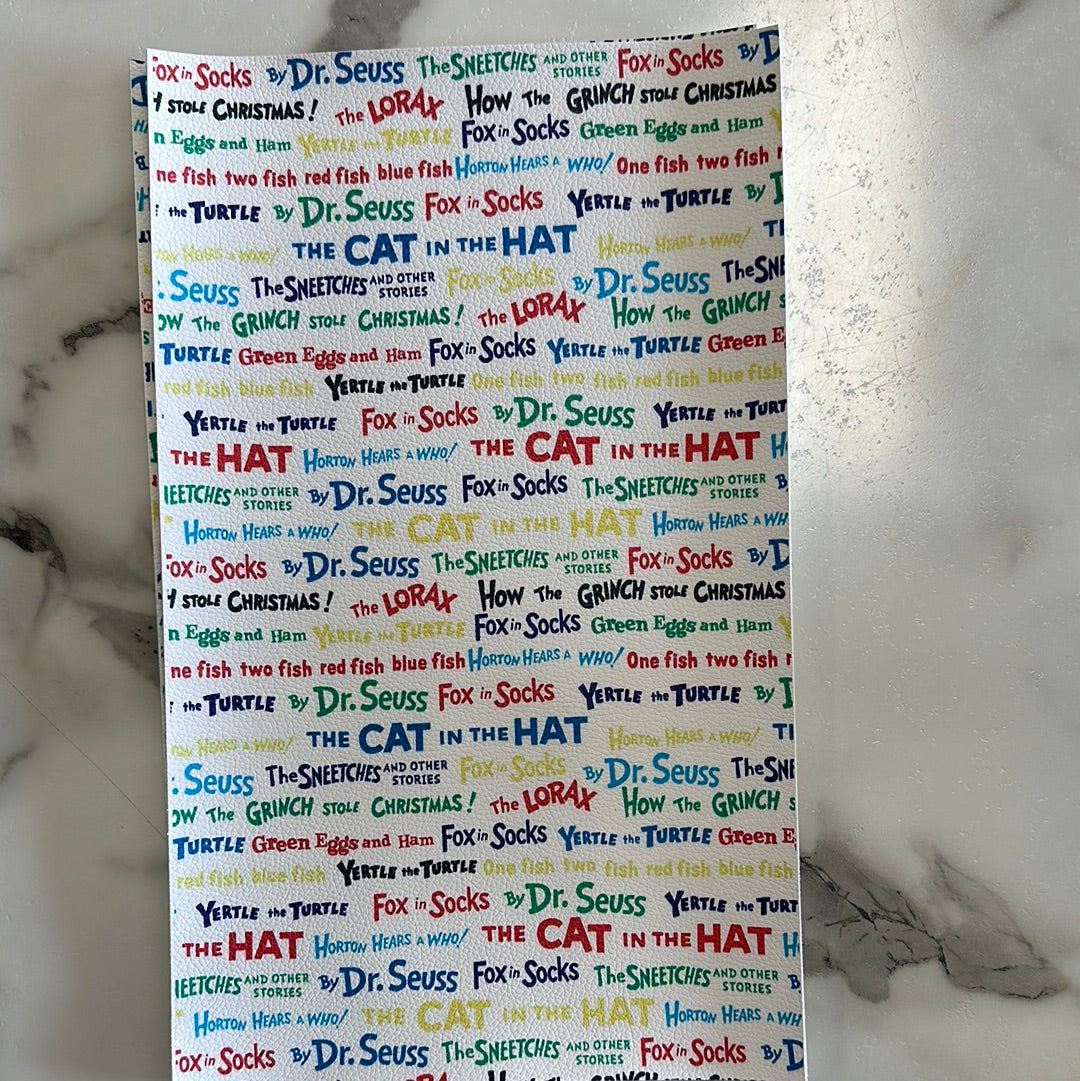 Fox in Socks By Dr. Seuss The SNEETCHES AND OTHER STORIES Fox in Socks By D
H STOLE CHRISTMAS! The LORAX How The GRINCH STOLE CHRISTMAS
n Eggs and Ham YERTLE the TURTLE Fox in Socks Green Eggs and Ham Y
ne fish two fish red fish blue fish HORTON HEARS A WHO! One fish two fish r
the TURTLE By Dr. Seuss Fox in Socks YERTLE the TURTLE By D
ON HEARS A WHO! THE CAT IN THE HAT HORTON HEARS A WHO! TH
. Seuss The SNEETCHES AND OTHER STORIES Fox in Socks By Dr. Seuss The SNE
OW The GRINCH STOLE CHRISTMAS! The LORAX How The GRINCH S
TURTLE Green Eggs and Ham Fox in Socks YERTLE the TURTLE Green E
red fish blue fish YERTLE the TURTLE One fish two fish red fish blue fish
YERTLE the TURTLE Fox in Socks By Dr. Seuss YERTLE the TURT
THE HAT HORTON HEARS A WHO! THE CAT IN THE HAT H
NEETCHES AND OTHER STORIES By Dr. Seuss Fox in Socks The SNEETCHES AND OTHER STORIES B
HORTON HEARS A WHO! THE CAT IN THE HAT HORTON HEARS A WH
Fox in Socks By Dr. Seuss The SNEETCHES AND OTHER STORIES Fox in Socks By D
H STOLE CHRISTMAS! The LORAX How The GRINCH STOLE CHRISTMAS
n Eggs and Ham YERTLE the TURTLE Fox in Socks Green Eggs and Ham Y
ne fish two fish red fish blue fish HORTON HEARS A WHO! One fish two fish r
the TURTLE By Dr. Seuss Fox in Socks YERTLE the TURTLE By D
ON HEARS A WHO! THE CAT IN THE HAT HORTON HEARS A WHO! TH
. Seuss The SNEETCHES AND OTHER STORIES Fox in Socks By Dr. Seuss The SNE
OW The GRINCH STOLE CHRISTMAS! The LORAX How The GRINCH S
TURTLE Green Eggs and Ham Fox in Socks YERTLE the TURTLE Green E
red fish blue fish YERTLE the TURTLE One fish two fish red fish blue fish
YERTLE the TURTLE Fox in Socks By Dr. Seuss YERTLE the TURT
THE HAT HORTON HEARS A WHO! THE CAT IN THE HAT H
NEETCHES AND OTHER STORIES By Dr. Seuss Fox in Socks The SNEETCHES AND OTHER STORIES B
HORTON HEARS A WHO! THE CAT IN THE HAT HORTON HEARS A WH
ox in Socks By Dr. Seuss The SNEETCHES AND OTHER STORIES Fox in Socks By D